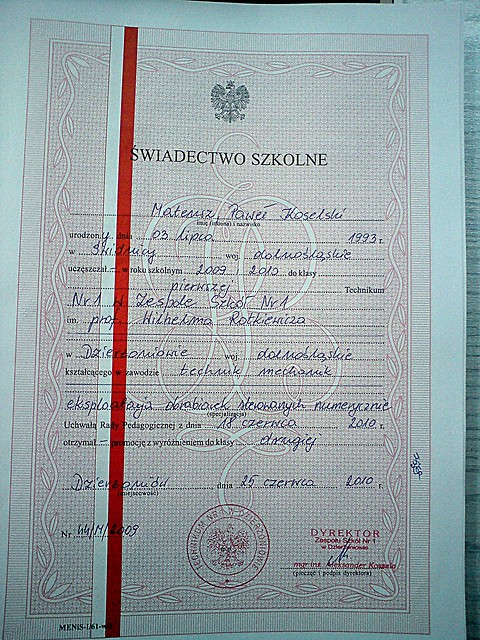 ŚWIADECTWO SZKOLNE
Mateusz, Paweł Koselski
imię (imiona) i nazwisko
urodzony dnia 03 lipca 1993 r.
w Świdnicy woj. dolnośląskie
uczęszczał — w roku szkolnym 2009 / 2010 do klasy
pierwszej Technikum
Nr 1 w Zespole Szkół Nr 1
im. prof. Wilhelma Rotkiewicza
w Dzierżoniowie woj. dolnośląskie
kształcącego w zawodzie technik mechanik
eksploatacja obrabiarek sterowanych numerycznie
(specjalizacja)
Uchwałą Rady Pedagogicznej z dnia 18 czerwca 2010 r.
otrzymał — promocję z wyróżnieniem do klasy drugiej
Dzierżoniów dnia 25 czerwca 2010 r.
(miejscowość)
Nr 44/M/2009
TECHNIKUM NR 1 W DZIERŻONIOWIE
DYREKTOR
Zespołu Szkół Nr 1
w Dzierżoniowie
mgr inż. Aleksander
(pieczęć i podpis dyrektora)
MENiS-I/61-w